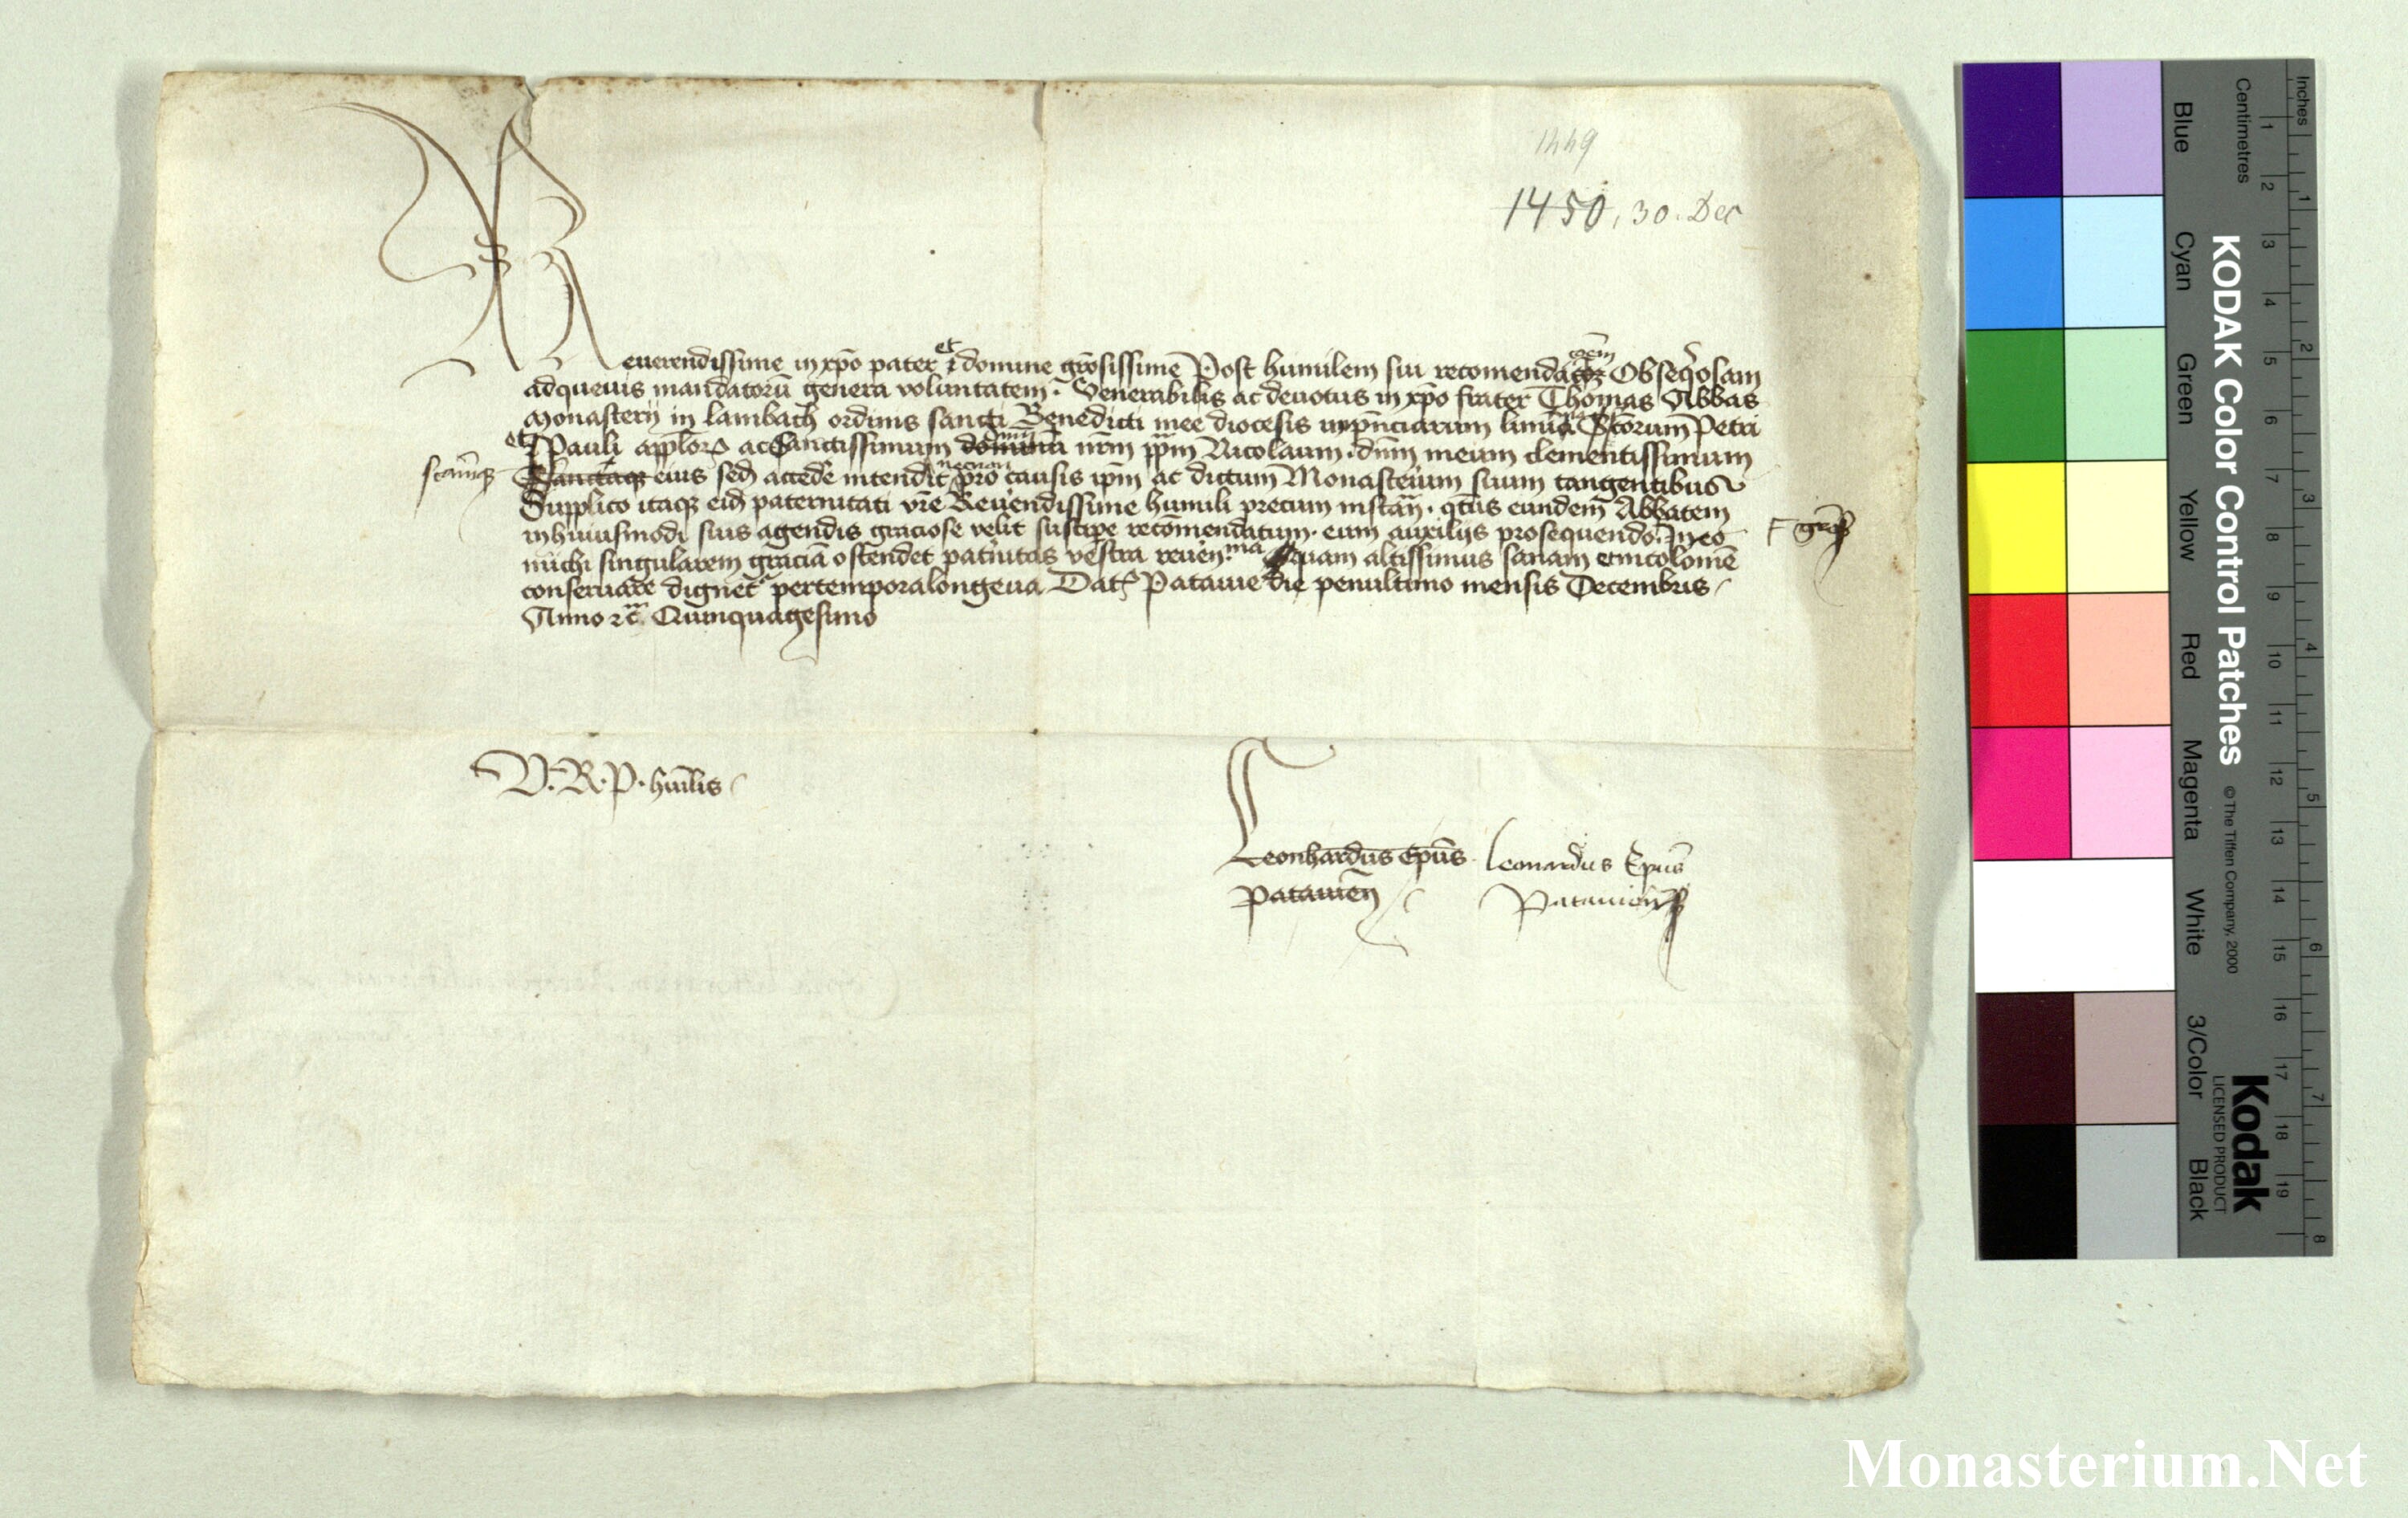 1449
1450, 30. Dec
Reuerendissime in xpo pater et domine grosissime Post humilem sui recomendacoem Obseqosam
ad queuis mandatoru genera voluntatem. Venerabilis ac deuotus in xpo frater Thomas Abbas
Monasterij in lambach ordinis sancti Benedicti mee diocesis inpnciarum limina Sctorum Petri
et Pauli applor ac Sanctissimum dominu nrm ppm Nicolaum dnm meum clementissimum
Sanctaqz eius sed accede intendit necnon pro causis ipm ac dictum Monasterium suum tangentibus
Supplico itaqz eid paternitati vre Reuendissime humili precum instan. qtus eundem Abbatem
in huiusmodi suis agendis graciose velit suscipe recomendatum. eum auxilijs prosequendo. In eo
michi singularem gracia ostendet patnitas vestra reuen.ma quam altissimus sanam et incolome
conseruare dignet per tempora longeua Dat Patauie die penultimo mensis Decembris
Anno 2c Quinquagesimo
V. R. P. humlis
Leonhardus Epus
Patauien
Leonardus Epus
Patauien
Inches
Centimetres
Blue
Cyan
Green
Yellow
Red
Magenta
White
3/Color
Black
KODAK Color Control Patches
© The Tiffen Company, 2000
Kodak
LICENSED PRODUCT
1 2 3 4 5 6 7 8 9 10 11 12 13 14 15 16 17 18 19
1 2 3 4 5 6 7 8
Monasterium.Net